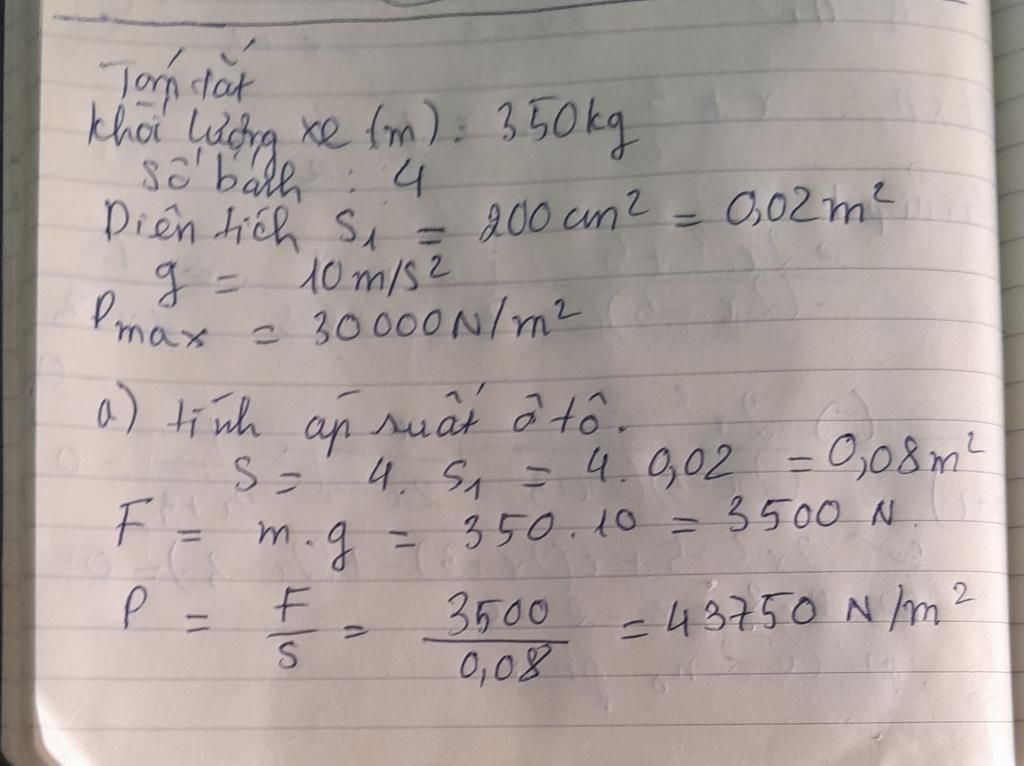 Tóm tắt
khối lượng xe (m): 350kg
Số bánh : 4
Diện tích S₁ = 200cm² = 0,02m²
g = 10m/s²
Pmax = 30000N/m²
a) tính áp suất ô tô.
S = 4. S₁ = 4. 0,02 = 0,08m²
F = m.g = 350.10 = 3500 N
P = F/S = 3500/0,08 = 43750 N/m²